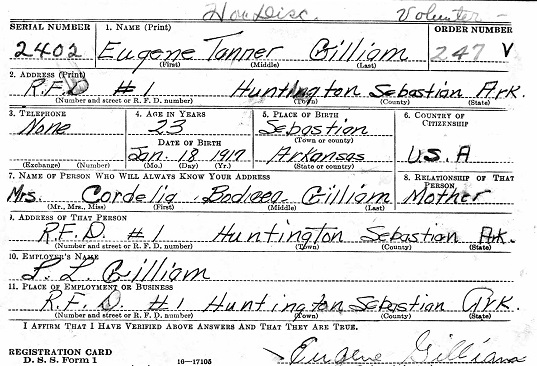 Hon Disc. Volunter -
SERIAL NUMBER 1. NAME (Print) ORDER NUMBER
2402 Eugene Tanner Gilliam 247 V
(First) (Middle) (Last)
2. ADDRESS (Print)
R.F.D #1 Huntington Sebastian Ark.
(Number and street or R. F. D. number) (Town) (County) (State)
3. TELEPHONE 4. AGE IN YEARS 5. PLACE OF BIRTH 6. COUNTRY OF CITIZENSHIP
None 23 Sebastian
DATE OF BIRTH (Town or county)
Jan. 18 1917 Arkansas U.S.A
(Exchange) (Number) (Mo.) (Day) (Yr.) (State or country)
7. NAME OF PERSON WHO WILL ALWAYS KNOW YOUR ADDRESS 8. RELATIONSHIP OF THAT PERSON
Mrs. Cordelia Bodicea Gilliam Mother
(Mr., Mrs., Miss) (First) (Middle) (Last)
9. ADDRESS OF THAT PERSON
R.F.D. #1 Huntington Sebastian Ark.
(Number and street or R. F. D. number) (Town) (County) (State)
10. EMPLOYER'S NAME
L. L. Gilliam
11. PLACE OF EMPLOYMENT OR BUSINESS
R.F.D #1 Huntington Sebastian Ark.
(Number and street or R. F. D. number) (Town) (County) (State)
I AFFIRM THAT I HAVE VERIFIED ABOVE ANSWERS AND THAT THEY ARE TRUE.
REGISTRATION CARD
D. S. S. Form 1 16—17105 Eugene Gilliam